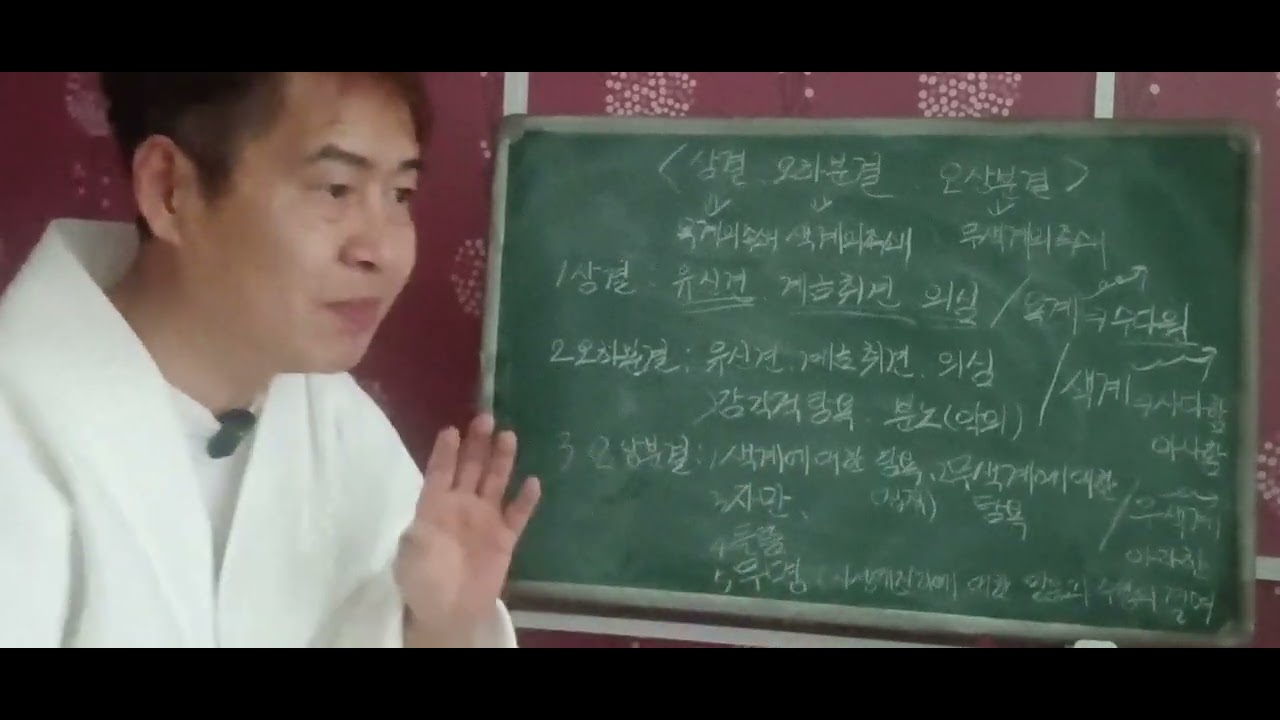 <삼결 오하분결 오상분결>
욕계의족쇄 색계의족쇄 무색계의족쇄
1 삼결 : 유신견 계금취견 의심 / 욕계 수다원
2. 오하분결 : 유신견, 계금취견, 의심 / 색계 사다함
감각적탐욕 분노(악의) 아나함
3 오상분결 : 1 색계에대한 탐욕, 2무색계에대한
3자만, 탐욕 / 무색계
4들뜸 아라한
5, 무명 에 대한